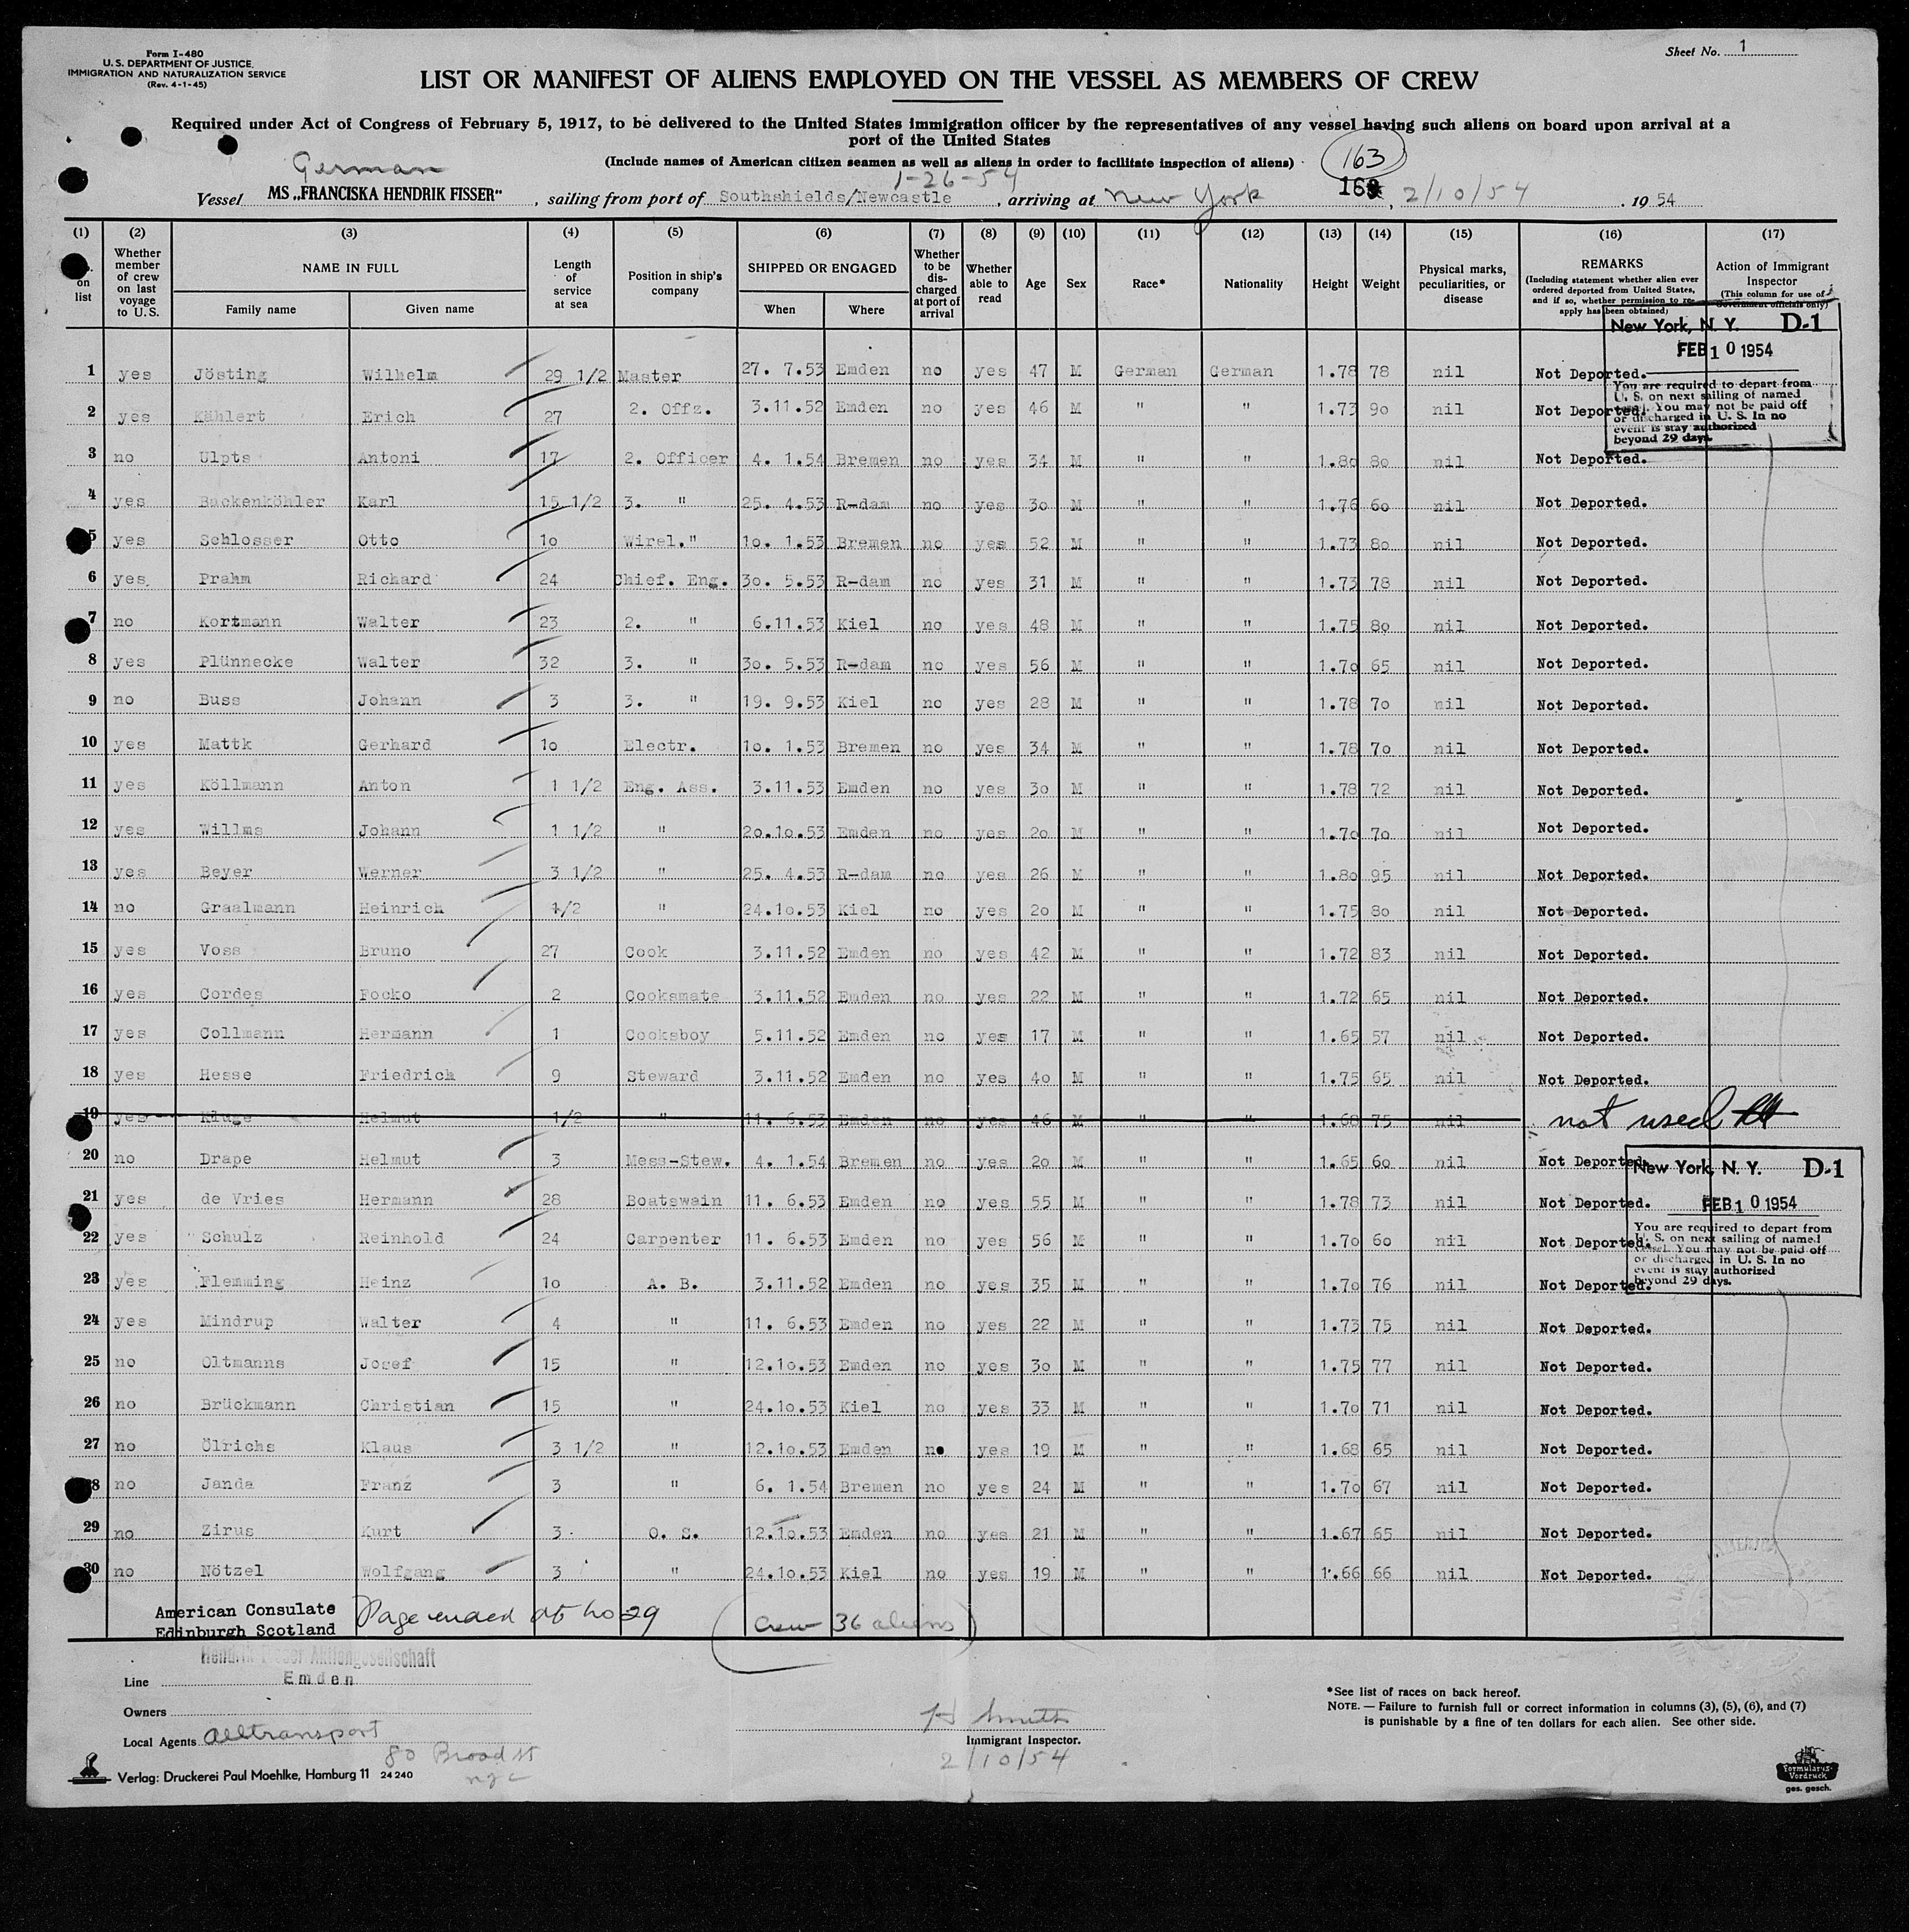 Form I-480
U. S. DEPARTMENT OF JUSTICE
IMMIGRATION AND NATURALIZATION SERVICE
(Rev. 4-1-45)
Sheet No. 1
LIST OR MANIFEST OF ALIENS EMPLOYED ON THE VESSEL AS MEMBERS OF CREW
Required under Act of Congress of February 5, 1917, to be delivered to the United States immigration officer by the representatives of any vessel having such aliens on board upon arrival at a
port of the United States
(Include names of American citizen seamen as well as aliens in order to facilitate inspection of aliens)
163
German
1-26-54
Vessel MS „FRANCISKA HENDRIK FISSER“, sailing from port of Southshields/Newcastle, arriving at New York 2/10/54, 1954
(1) (2) (3) (4) (5) (6) (7) (8) (9) (10) (11) (12) (13) (14) (15) (16) (17)
on list
Whether member of crew on last voyage to U. S.
NAME IN FULL
Family name Given name
Length of service at sea
Position in ship's company
SHIPPED OR ENGAGED
When Where
Whether to be discharged at port of arrival
Whether able to read
Age Sex Race* Nationality Height Weight
Physical marks, peculiarities, or disease
REMARKS
(Including statement whether alien ever ordered deported from United States, and if so, whether permission to re-apply has been obtained)
Action of Immigrant Inspector
(This column for use of Government officials only)
New York, N. Y. D-1
FEB 10 1954
You are required to depart from
U. S. on next sailing of named
vessel. You may not be paid off
or discharged in U. S. In no
event is stay authorized
beyond 29 days.
1 yes Jösting Wilhelm 29 1/2 Master 27. 7.53 Emden no yes 47 M German German 1.78 78 nil Not Deported.
2 yes Kählert Erich 27 2. Offz. 3.11.52 Emden no yes 46 M " " 1.73 90 nil Not Deported.
3 no Ulpts Antoni 17 2. Officer 4. 1.54 Bremen no yes 34 M " " 1.80 80 nil Not Deported.
4 yes Backenköhler Karl 15 1/2 3. " 25. 4.53 R-dam no yes 30 M " " 1.76 60 nil Not Deported.
5 yes Schlosser Otto 10 Wirel." 10. 1.53 Bremen no yes 52 M " " 1.73 80 nil Not Deported.
6 yes Prahm Richard 24 Chief. Eng. 30. 5.53 R-dam no yes 31 M " " 1.73 78 nil Not Deported.
7 no Kortmann Walter 23 2. " 6.11.53 Kiel no yes 48 M " " 1.75 80 nil Not Deported.
8 yes Plünnecke Walter 32 3. " 30. 5.53 R-dam no yes 56 M " " 1.70 65 nil Not Deported.
9 no Buss Johann 3 3. " 19. 9.53 Kiel no yes 28 M " " 1.78 70 nil Not Deported.
10 yes Mattk Gerhard 10 Electr. 10. 1.53 Bremen no yes 34 M " " 1.78 70 nil Not Deported.
11 yes Köllmann Anton 1 1/2 Eng. Ass. 3.11.53 Emden no yes 30 M " " 1.78 72 nil Not Deported.
12 yes Willms Johann 1 1/2 " 20.10.53 Emden no yes 20 M " " 1.70 70 nil Not Deported.
13 yes Beyer Werner 3 1/2 " 25. 4.53 R-dam no yes 26 M " " 1.80 95 nil Not Deported.
14 no Graalmann Heinrich 1/2 " 24.10.53 Kiel no yes 20 M " " 1.75 80 nil Not Deported.
15 yes Voss Bruno 27 Cook 3.11.52 Emden no yes 42 M " " 1.72 83 nil Not Deported.
16 yes Cordes Focko 2 Cooksmate 3.11.52 Emden no yes 22 M " " 1.72 65 nil Not Deported.
17 yes Collmann Hermann 1 Cooksboy 5.11.52 Emden no yes 17 M " " 1.65 57 nil Not Deported.
18 yes Hesse Friedrich 9 Steward 3.11.52 Emden no yes 40 M " " 1.75 65 nil Not Deported.
19 yes Kluge Helmut 1/2 " 11. 6.53 Emden no yes 46 M " " 1.68 75 nil not used
20 no Drape Helmut 3 Mess-Stew. 4. 1.54 Bremen no yes 20 M " " 1.65 60 nil Not Deported.
21 yes de Vries Hermann 28 Boatswain 11. 6.53 Emden no yes 55 M " " 1.78 73 nil Not Deported.
22 yes Schulz Reinhold 24 Carpenter 11. 6.53 Emden no yes 56 M " " 1.70 60 nil Not Deported.
23 yes Flemming Heinz 10 A. B. 3.11.52 Emden no yes 35 M " " 1.70 76 nil Not Deported.
New York, N. Y. D-1
FEB 10 1954
You are required to depart from
U. S. on next sailing of named
vessel. You may not be paid off
or discharged in U. S. In no
event is stay authorized
beyond 29 days.
24 yes Mindrup Walter 4 " 11. 6.53 Emden no yes 22 M " " 1.73 75 nil Not Deported.
25 no Oltmanns Josef 15 " 12.10.53 Emden no yes 30 M " " 1.75 77 nil Not Deported.
26 no Brückmann Christian 15 " 24.10.53 Kiel no yes 33 M " " 1.70 71 nil Not Deported.
27 no Ölrichs Klaus 3 1/2 " 12.10.53 Emden no yes 19 M " " 1.68 65 nil Not Deported.
28 no Janda Franz 3 " 6. 1.54 Bremen no yes 24 M " " 1.70 67 nil Not Deported.
29 no Zirus Kurt 3 O. S. 12.10.53 Emden no yes 21 M " " 1.67 65 nil Not Deported.
30 no Nötzel Wolfgang 3 " 24.10.53 Kiel no yes 19 M " " 1.66 66 nil Not Deported.
American Consulate
Edinburgh Scotland
Page ended at no 29
(Crew 36 aliens)
Hendrik Fisser Aktiengesellschaft
Line Emden
Owners
Local Agents Alltransport
80 Broad St
nyc
H Smith
Immigrant Inspector.
2/10/54
*See list of races on back hereof.
NOTE. — Failure to furnish full or correct information in columns (3), (5), (6), and (7)
is punishable by a fine of ten dollars for each alien. See other side.
Verlag: Druckerei Paul Moehlke, Hamburg 11 24 240
Formular-Vordruck
ges. gesch.